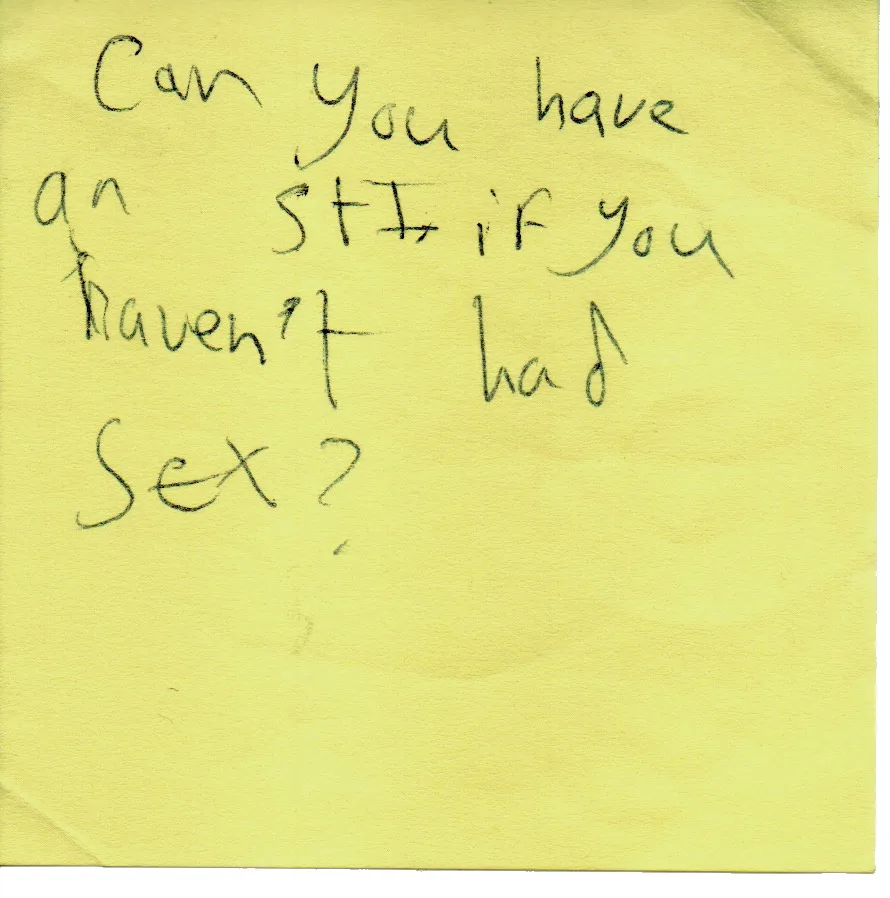 Can you have
an StI if you
haven't had
Sex?